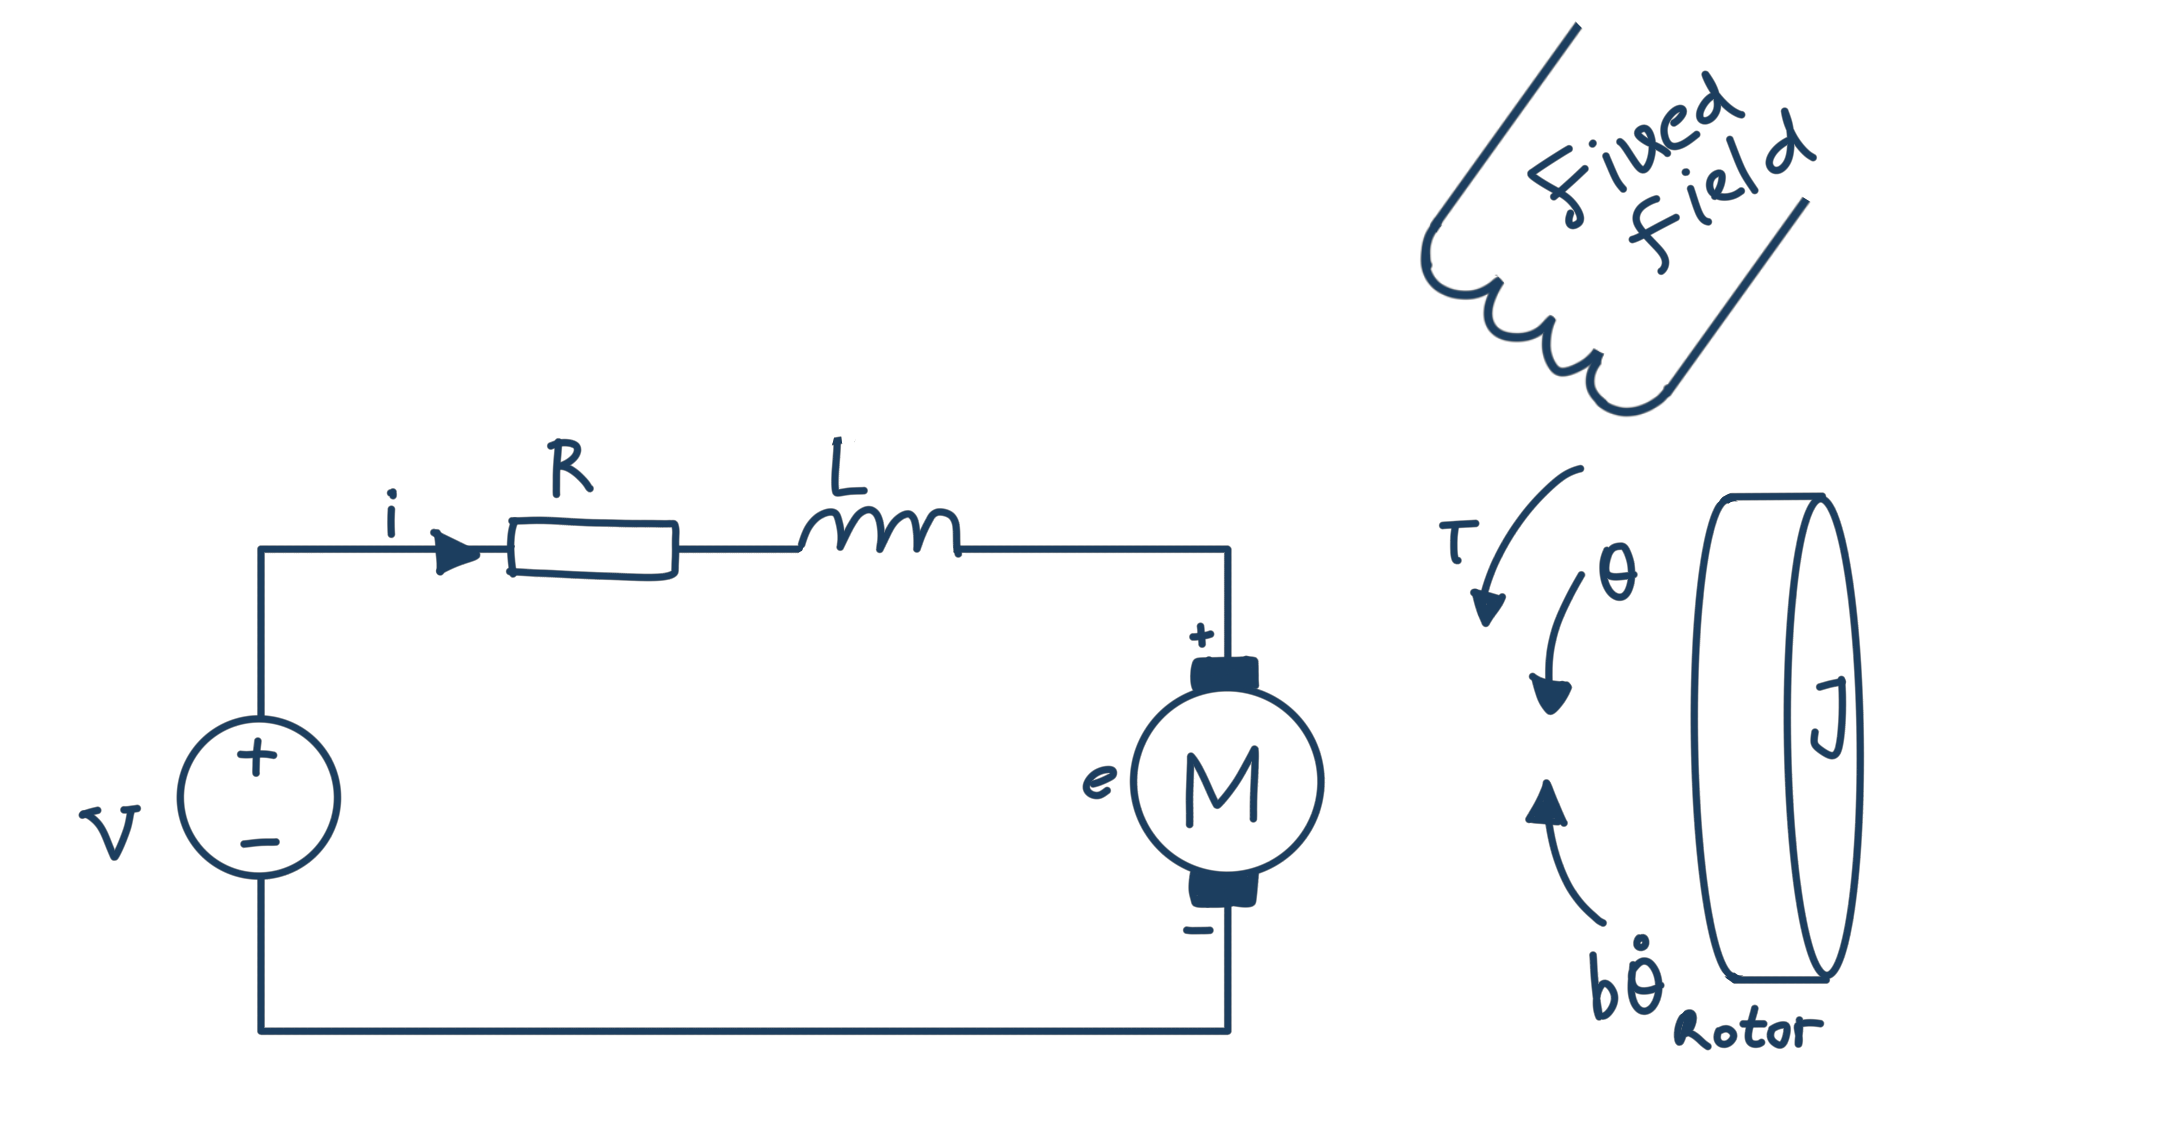 fixed
field
R
L
i
T
θ
+
+
−
V
e
M
J
−
bθ̇
Rotor